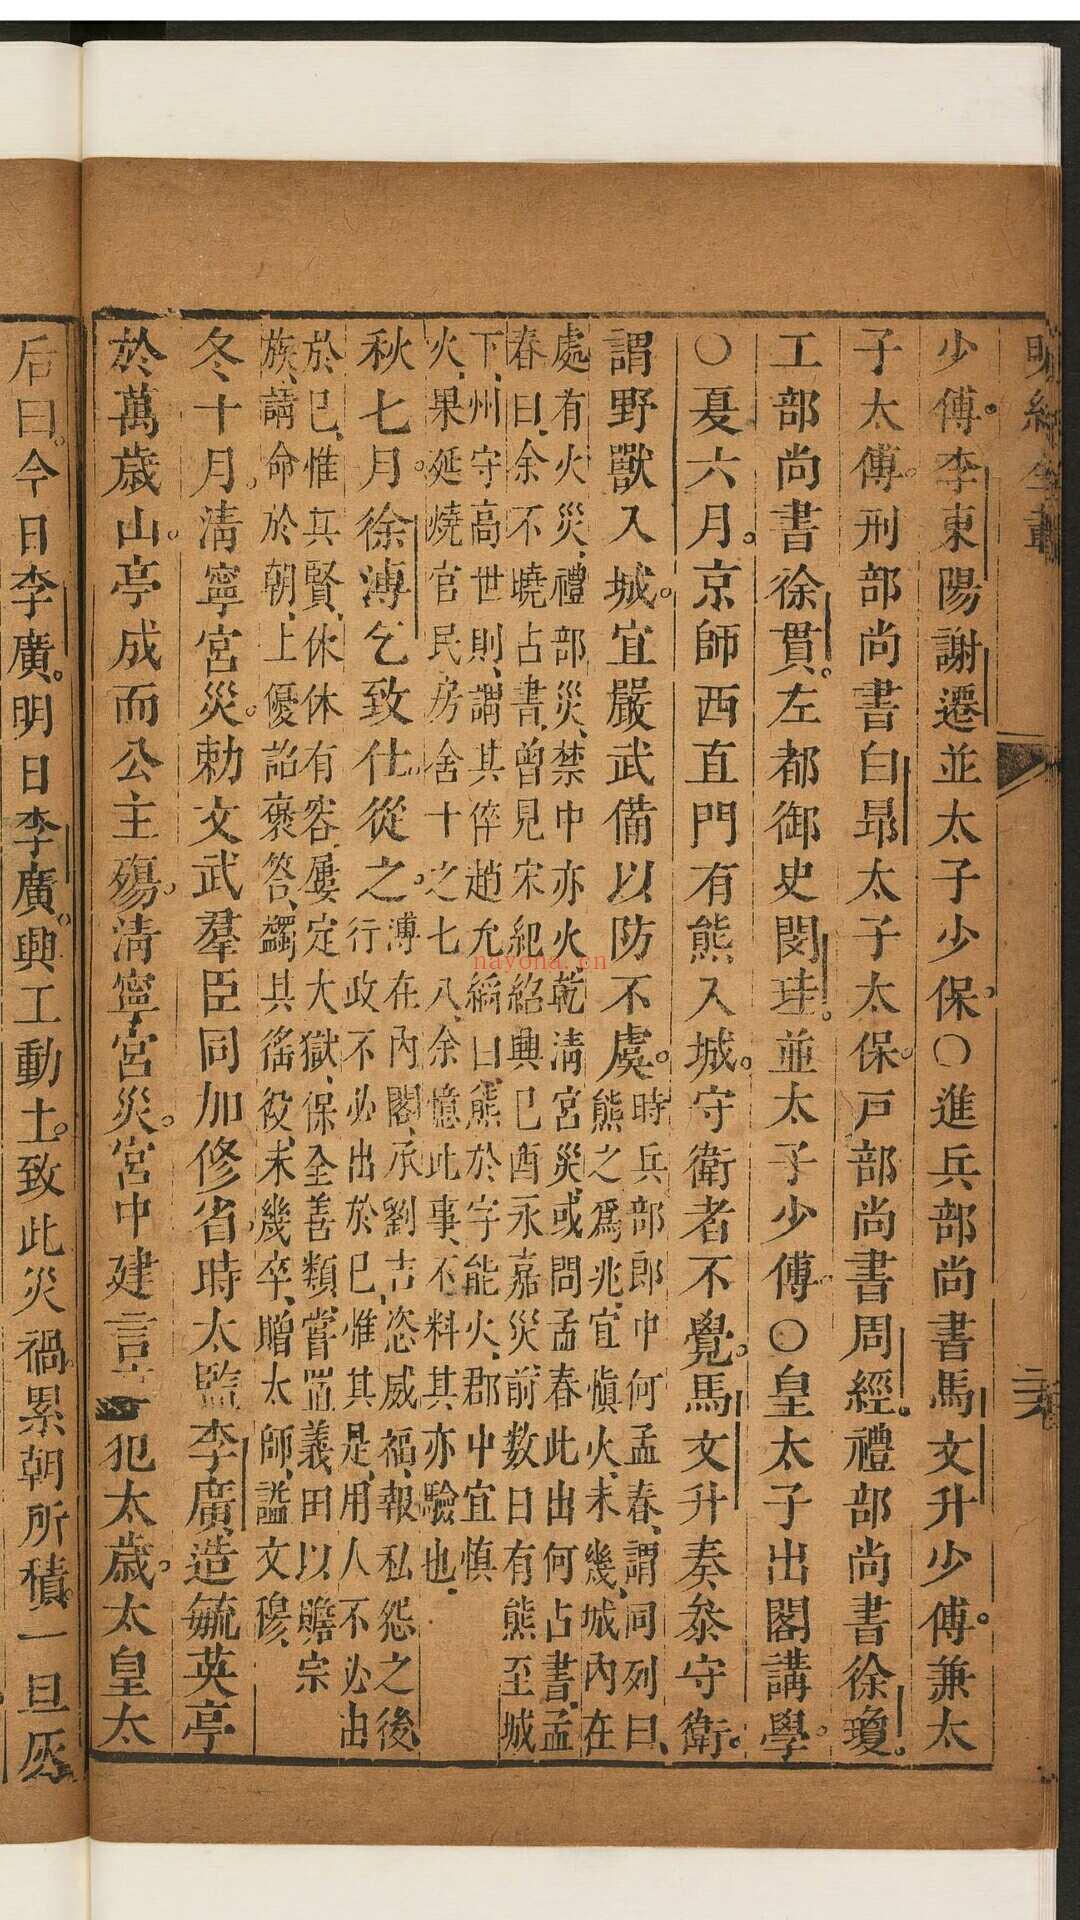 少傅。李東陽謝遷並太子少保。○進兵部尚書馬文升少傅。兼太
子太傅。刑部尚書白昂太子太保。戸部尚書周經。禮部尚書徐瓊。
工部尚書徐貫。左都御史閔珪。並太子少傅。○皇太子出閣講學。
○夏六月。京師西直門有熊入城。守衛者不覺。馬文升奏叅守衛。
謂野獸入城。宜嚴武備以防不虞。
時兵部郎中何孟春、謂同列曰、
熊之爲兆、宜愼火、未幾、城內在
處有火災、禮部災、禁中亦火、乾清宮災、或問孟春此出何占書、孟
春曰、余不曉占書、曾見宋紀紹興巳酉永嘉災前數日有熊至城
下、州守高世則、謂其倅趙允縚曰、熊於字能火、郡中宜慎
火、果延燒官民房舍十之七八、余憶此事、不料其亦驗也、
秋七月。徐溥乞致仕。從之。
溥在內閣、承劉吉恣威福、報私怨之後
行政不必出於巳、惟其是、用人不必由
於巳、惟其賢、休休有容、屢定大獄、保全善類、嘗置義田以贍宗
族、請命於朝、上優詔褒答、蠲其徭役、未幾卒、贈太師、謚文穆、
冬十月。清寧宮災。勅文武羣臣同加修省時太監李廣、造毓英亭
於萬歲山。亭成而公主殤。清寧宮災。宮中建言 犯太歲。太皇太
后曰。今日李廣。明日李廣。興工動土。致此災禍。累朝所積。一旦灰